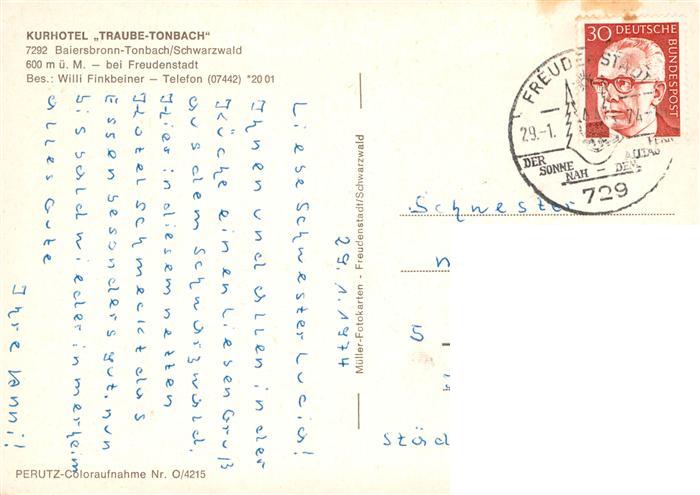 KURHOTEL „TRAUBE-TONBACH“
7292 Baiersbronn-Tonbach/Schwarzwald
600 m ü. M. — bei Freudenstadt
Bes.: Willi Finkbeiner — Telefon (07442) *2001
29.1.1974
Liebe Schwester Lucia!
Ihnen und allen in der
Küche einen lieben Gruß
aus dem Schwarzwald.
Hier in diesem netten
Hotel schmeckt das
Essen besonders gut. nun
bis bald wieder in merheim
alles Gute
Ihre
PERUTZ-Coloraufnahme Nr. O/4215
Müller-Fotokarten - Freudenstadt/Schwarzwald
30 DEUTSCHE
BUNDESPOST
FREUDENSTADT
29.-1.
DER SONNE NAH — DEM ALLTAG FERN
729
Schwester
S
Städ